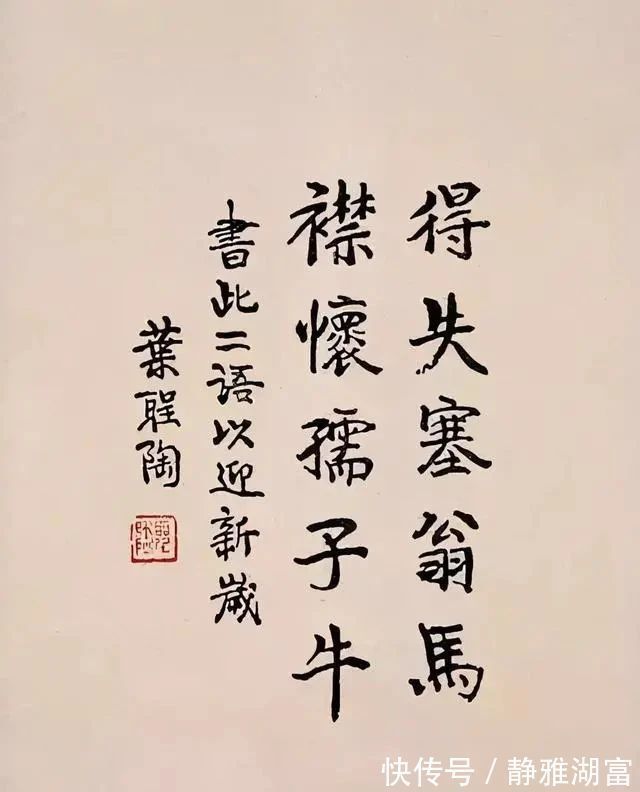 得失塞翁馬
襟懷孺子牛
書此二语以迎新歲
葉聖陶
快传号/静雅湖富